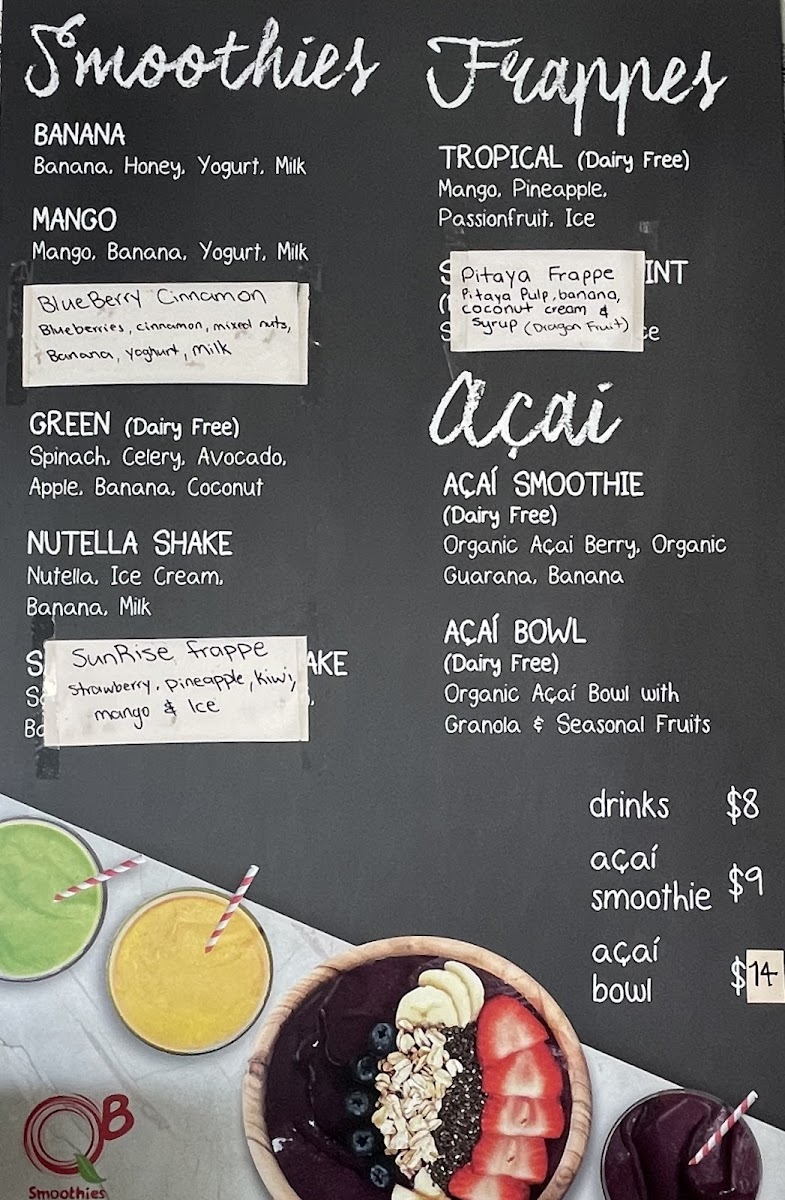 Smoothies
BANANA
Banana, Honey, Yogurt, Milk
MANGO
Mango, Banana, Yogurt, Milk
BlueBerry Cinnamon
Blueberries, cinnamon, mixed nuts,
Banana, yoghurt, milk
GREEN (Dairy Free)
Spinach, Celery, Avocado,
Apple, Banana, Coconut
NUTELLA SHAKE
Nutella, Ice Cream,
Banana, Milk
SunRise frappe
strawberry, pineapple, kiwi,
mango & Ice
Frappes
TROPICAL (Dairy Free)
Mango, Pineapple,
Passionfruit, Ice
Pitaya Frappe
Pitaya Pulp, banana,
coconut cream &
syrup (Dragon Fruit)
Açai
AÇAÍ SMOOTHIE
(Dairy Free)
Organic Açai Berry, Organic
Guarana, Banana
AÇAÍ BOWL
(Dairy Free)
Organic Açaí Bowl with
Granola & Seasonal Fruits
drinks $8
açaí
smoothie $9
açaí
bowl $14
QB
Smoothies